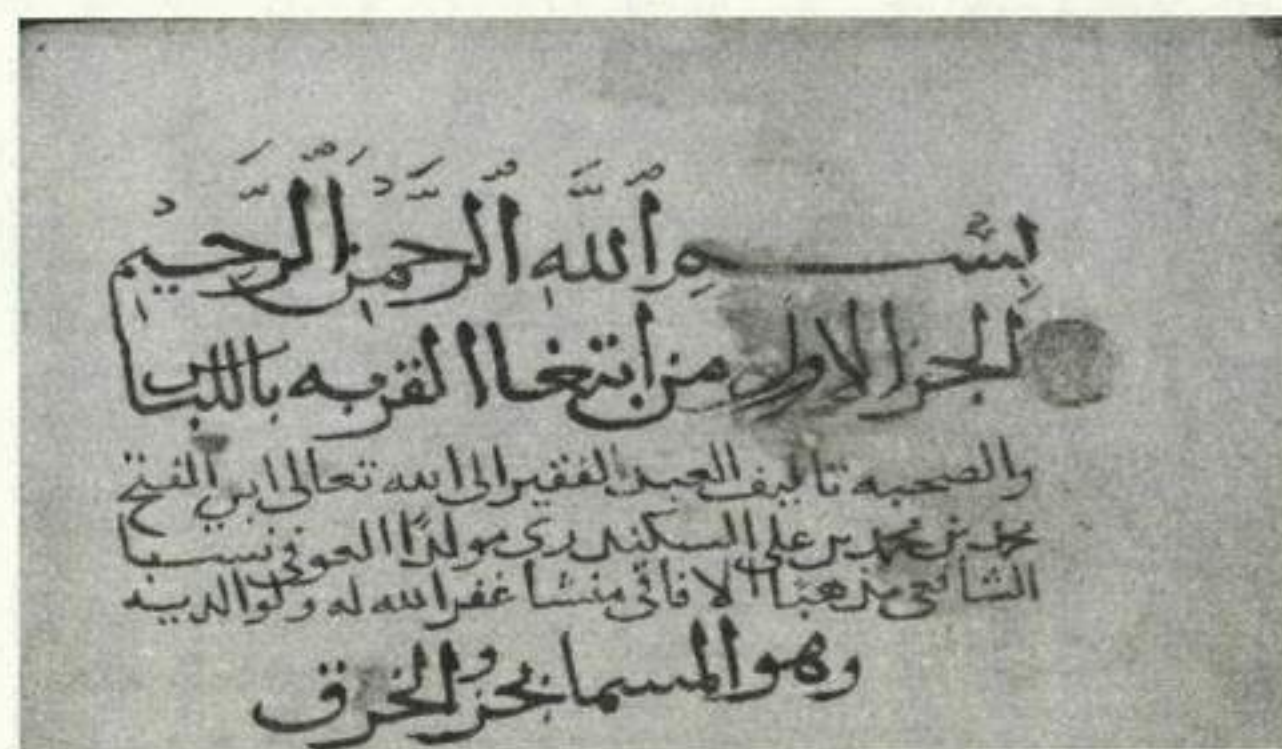 بِسْمِ ٱللَّهِ ٱلرَّحْمٰنِ ٱلرَّحِيْمِ
الجزا الاول من ابتغاا القربه باللباس
والصحبه تاليف العبد الفقير الى الله تعالى ابي الفتح
محمد بن محمد بن علي السكندري مولدًا العوفي نسبا
الشافعي مذهبا الافاقي منشا غفر الله له ولوالديه
وهو المسما بجزو الخرق